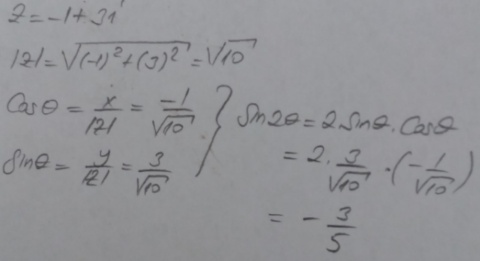 z = -1 + 3i
|z| = √((-1)² + (3)²) = √10
Cosθ = x/|z| = -1/√10
Sinθ = y/|z| = 3/√10
} Sin2θ = 2.Sinθ.Cosθ
= 2. 3/√10 . (-1/√10)
= - 3/5